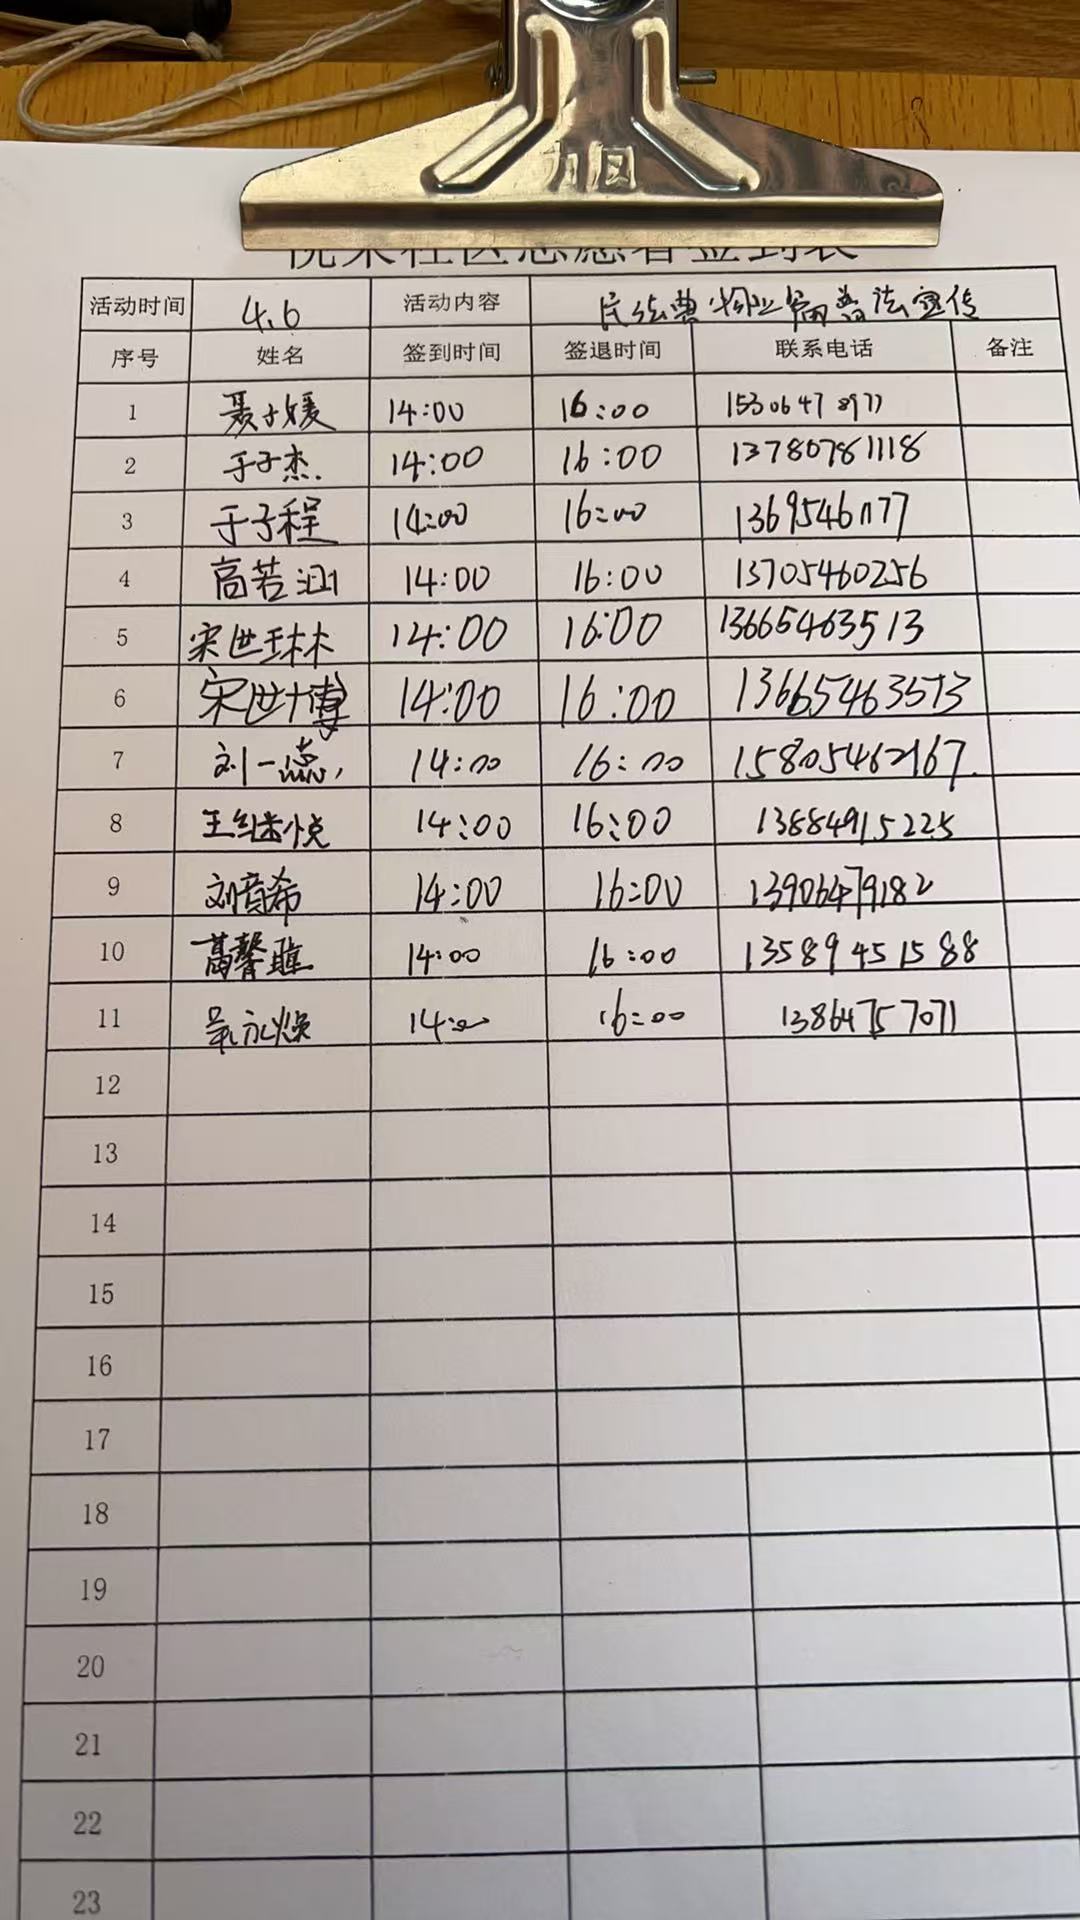 社区志愿者签到表
活动时间 4.6 活动内容 民法典物业篇普法宣传
序号 姓名 签到时间 签退时间 联系电话 备注
1 聂子媛 14:00 16:00 15306478977
2 于子杰. 14:00 16:00 13780781118
3 于子程 14:00 16:00 13695461177
4 高若涵 14:00 16:00 13705460256
5 宋世琳 14:00 16:00 13665463513
6 宋世博 14:00 16:00 13665463573
7 刘一蕊, 14:00 16:00 15805462167.
8 王继悦 14:00 16:00 13884915225
9 刘音希 14:00 16:00 13906479182
10 馨 14:00 16:00 13589451588
11 吴永焕 14:00 16:00 13864757071
12
13
14
15
16
17
18
19
20
21
22
23